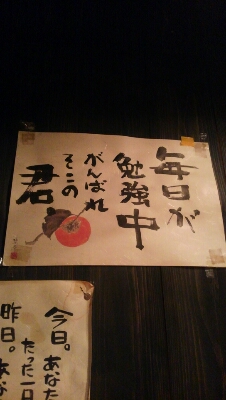 毎日が
勉強中
がんばれ
そこの
君
今日。あなた
たった一日
昨日。あな